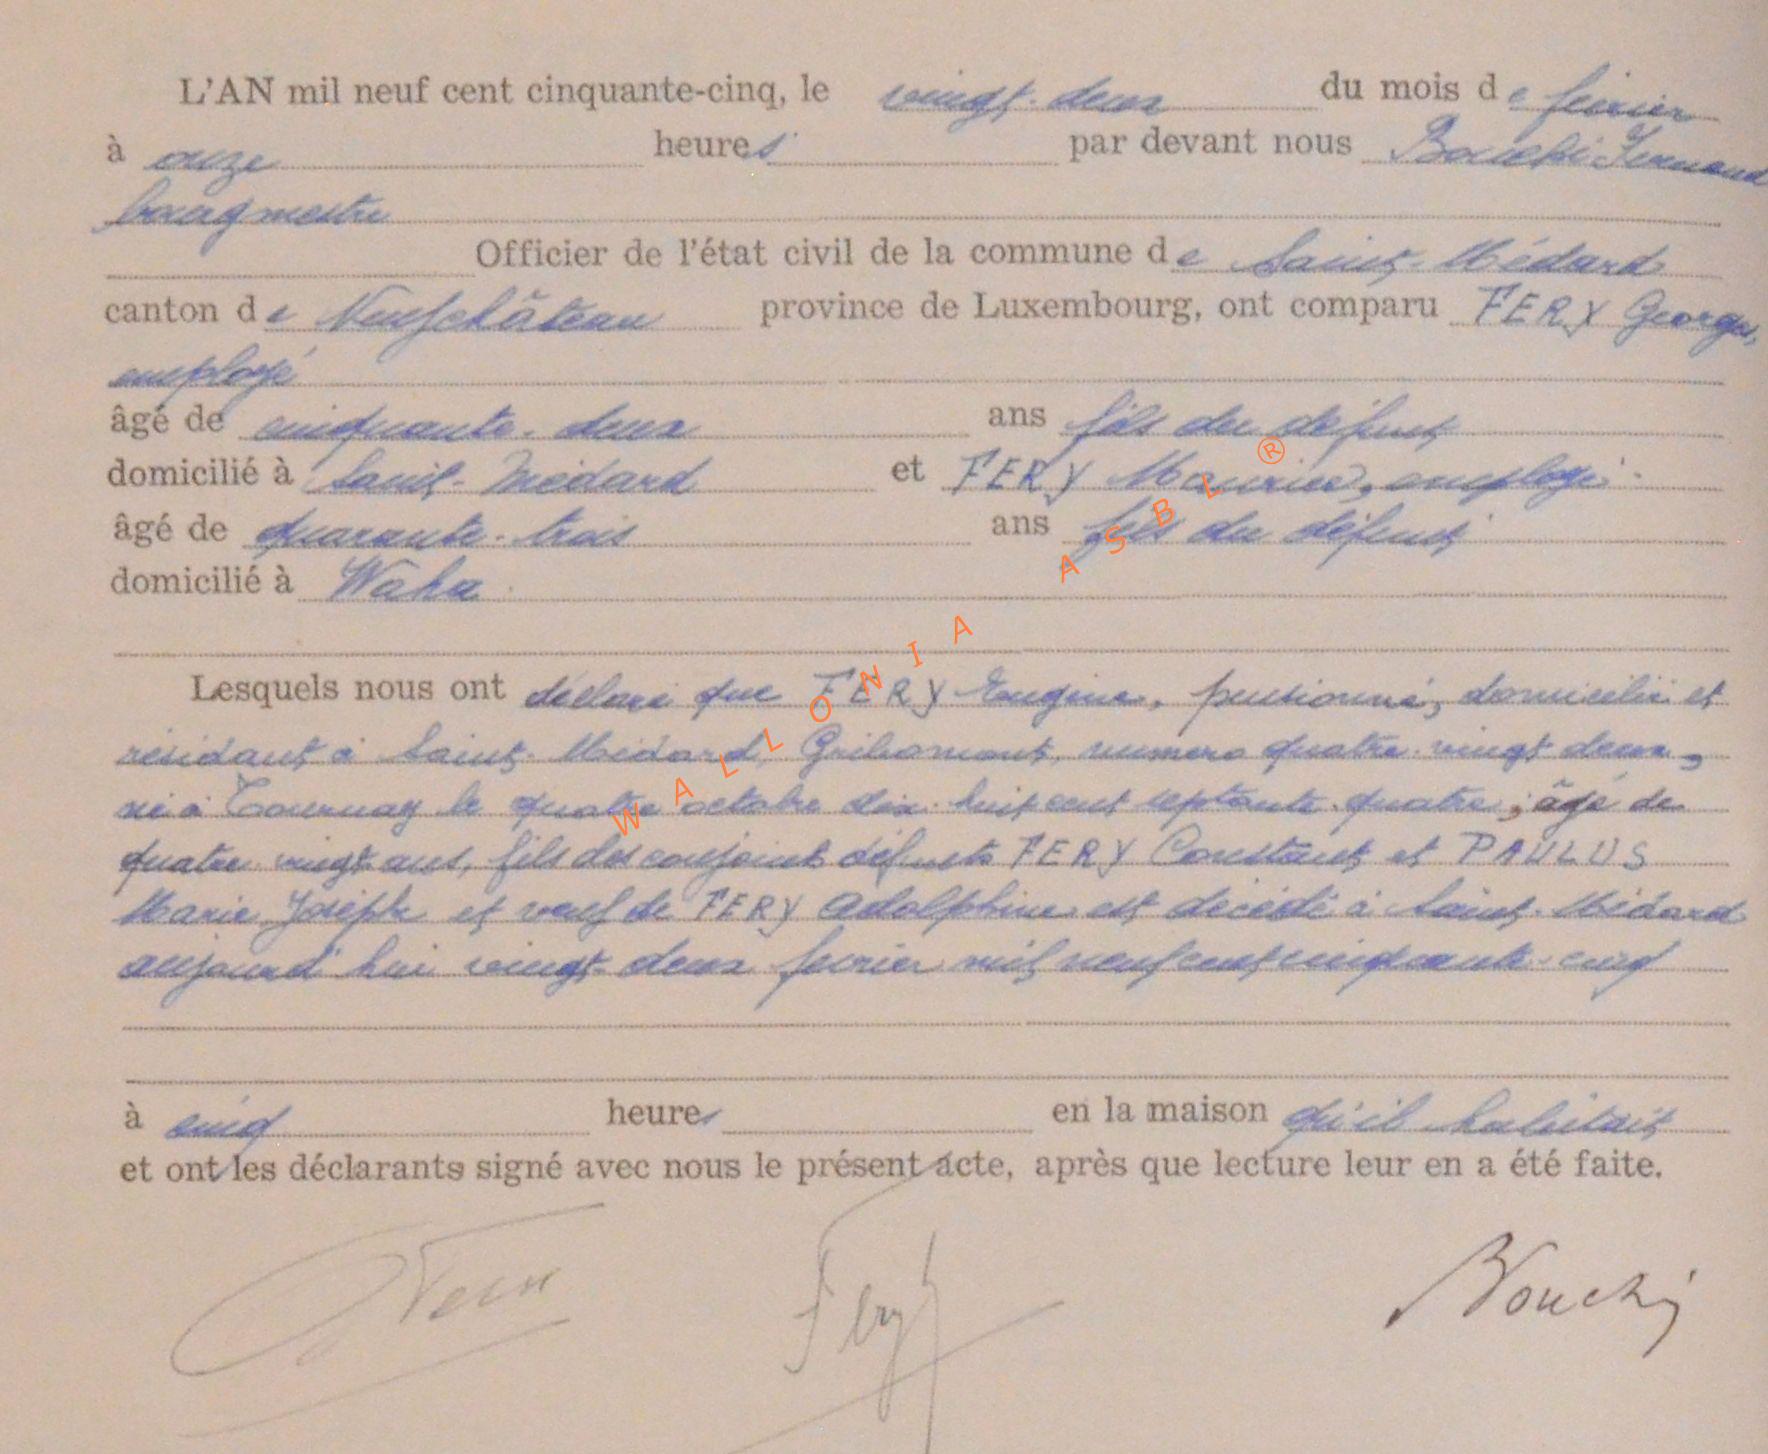 L'AN mil neuf cent cinquante-cinq, le vingt-deux du mois de février
à onze heures par devant nous Bouchi Fernand
bourgmestre
Officier de l'état civil de la commune de Saint-Médard
canton de Neufchâteau province de Luxembourg, ont comparu FERY Georges,
employé
âgé de cinquante-deux ans fils du défunt
domicilié à Saint-Médard et FERY Maurice, employé
âgé de quarante-trois ans fils du défunt
domicilié à Waha
Lesquels nous ont déclaré que FERY Eugène, pensionné, domicilié et
résidant à Saint-Médard, Gribomont, numéro quatre-vingt deux,
né à Tournay le quatre octobre dix-huit cent septante-quatre, âgé de
quatre-vingt ans, fils des conjoints défunts FERY Constant et PAULUS
Marie Joséph et veuf de FERY Adolphine est décédé à Saint-Médard
aujourd'hui vingt-deux février mil neuf cent cinquante-cinq
à cinq heures en la maison qu'il habitait
et ont les déclarants signé avec nous le présent acte, après que lecture leur en a été faite.
Fery Bouchi
WALLONIA ASBL ®